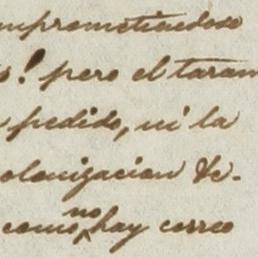 mprometiendose
s! pero el taram
pedido, ni la
olonizacion &c.
como no hay correo